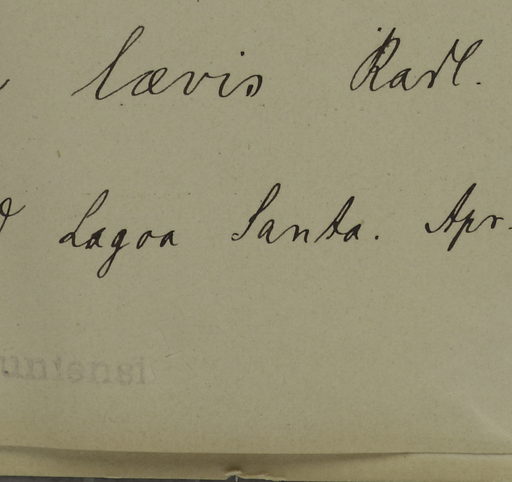 lævis Radl.
Lagoa Santa. Apr.